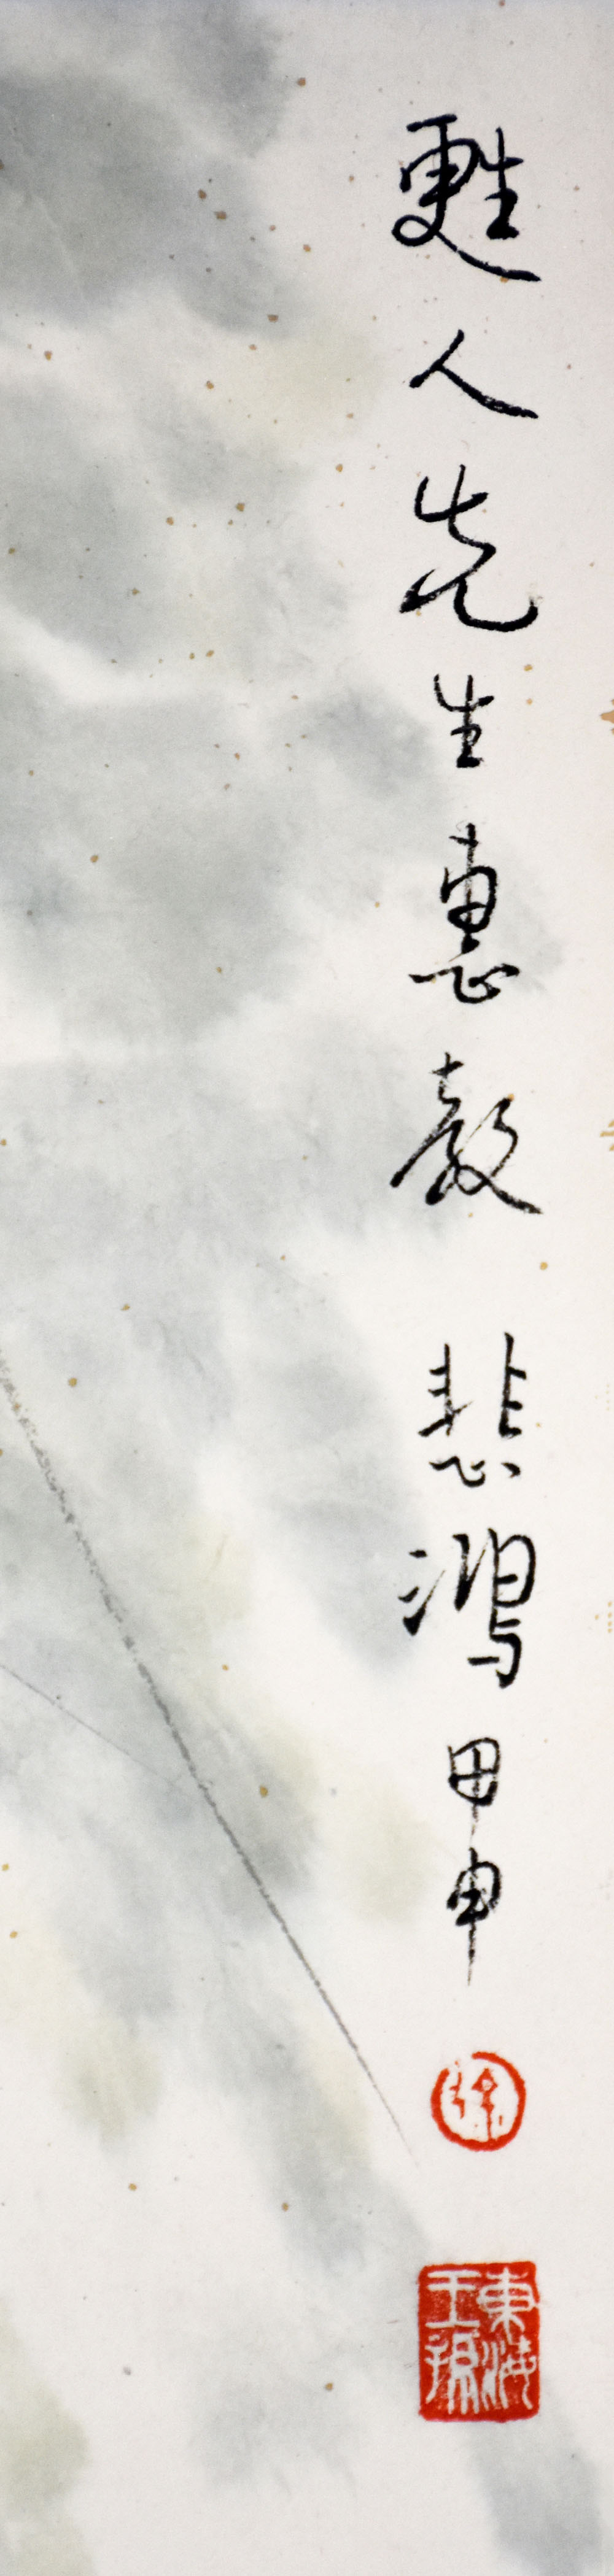 甦人先生惠教 悲鴻 甲申
徐
東海王孫